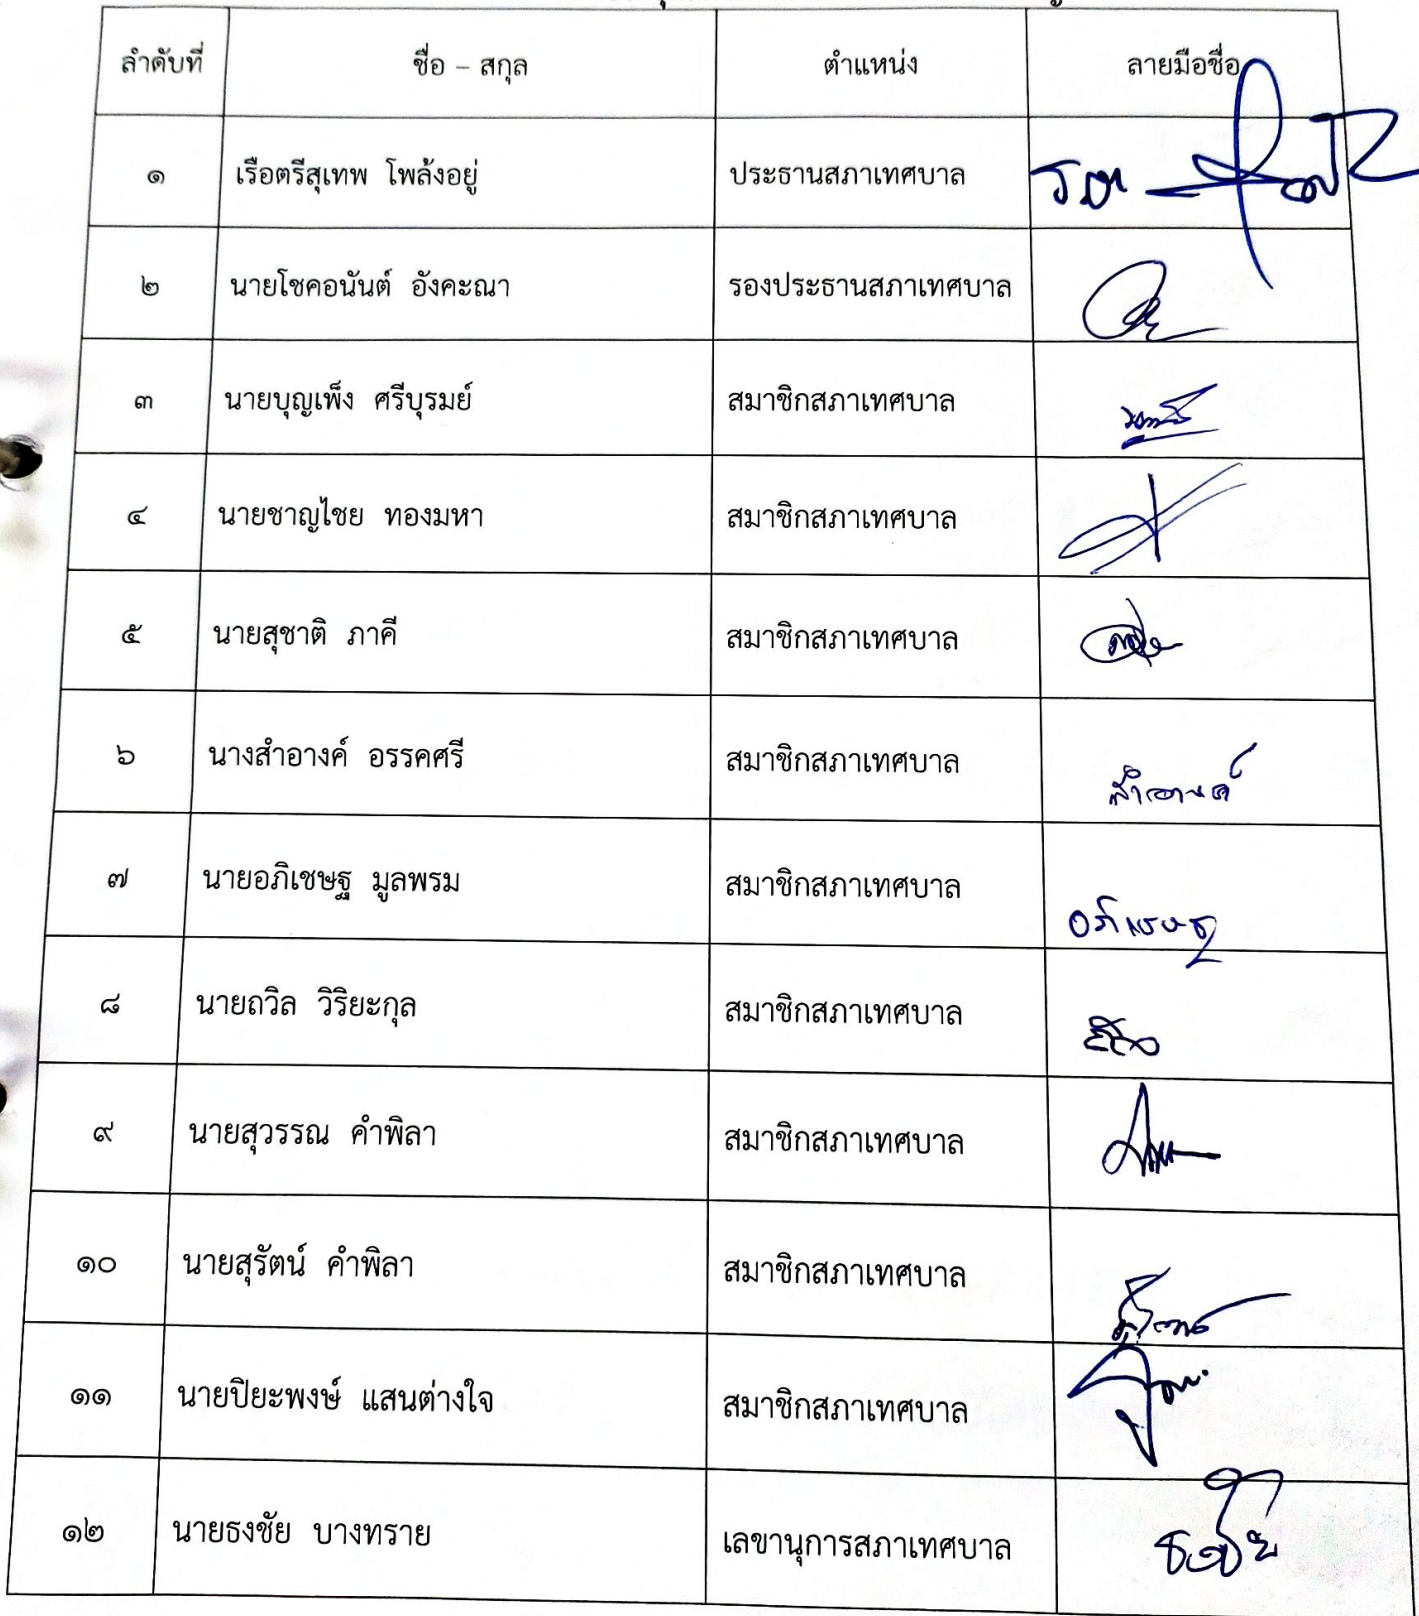 ลำดับที่ ชื่อ – สกุล ตำแหน่ง ลายมือชื่อ
๑ เรือตรีสุเทพ โพล้งอยู่ ประธานสภาเทศบาล
๒ นายโชคอนันต์ อังคะณา รองประธานสภาเทศบาล
๓ นายบุญเพ็ง ศรีบุรมย์ สมาชิกสภาเทศบาล
๔ นายชาญไชย ทองมหา สมาชิกสภาเทศบาล
๕ นายสุชาติ ภาคี สมาชิกสภาเทศบาล
๖ นางสำอางค์ อรรคศรี สมาชิกสภาเทศบาล สำอางค์
๗ นายอภิเชษฐ มูลพรม สมาชิกสภาเทศบาล อภิเชษฐ
๘ นายถวิล วิริยะกุล สมาชิกสภาเทศบาล
๙ นายสุวรรณ คำพิลา สมาชิกสภาเทศบาล
๑๐ นายสุรัตน์ คำพิลา สมาชิกสภาเทศบาล
๑๑ นายปิยะพงษ์ แสนต่างใจ สมาชิกสภาเทศบาล
๑๒ นายธงชัย บางทราย เลขานุการสภาเทศบาล ธงชัย